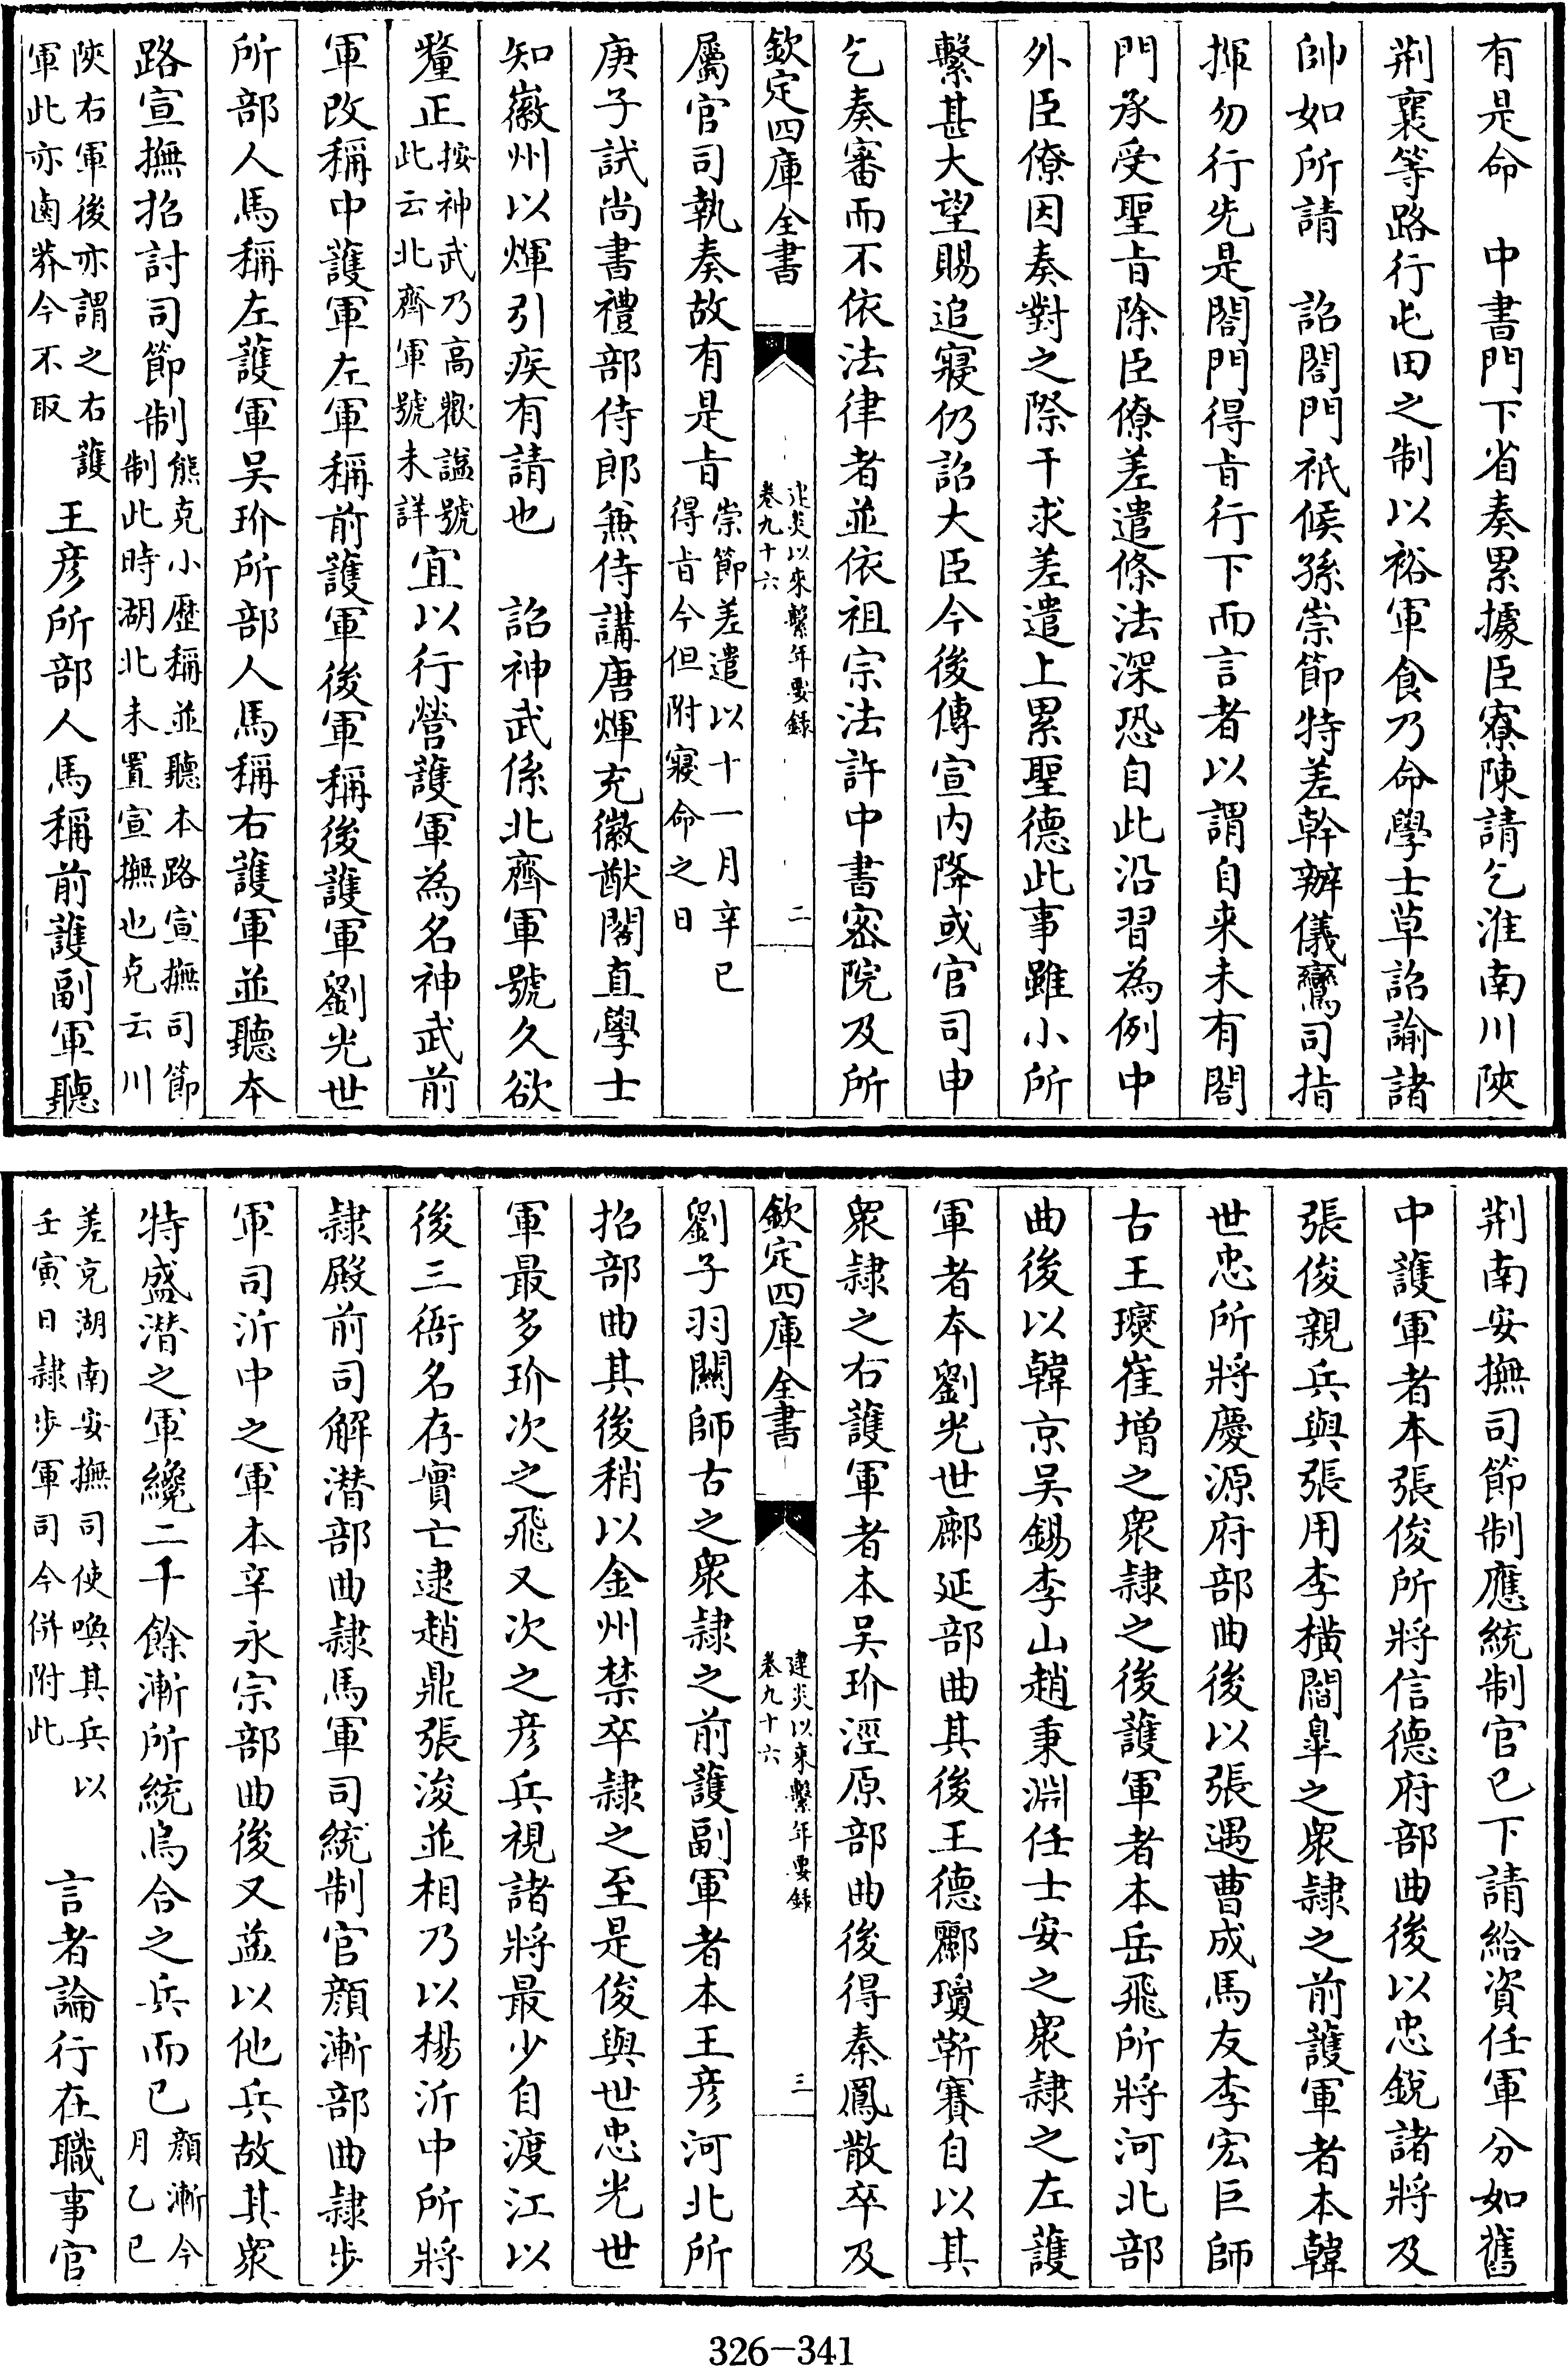 有是命　中書門下省奏累據臣寮陳請乞淮南川陝
荆襄等路行屯田之制以裕軍食乃命學士草詔諭諸
帥如所請　詔閤門祗候孫崇節特差幹辦儀鸞司指
揮勿行先是閤門得㫖行下而言者以謂自来未有閤
門承受聖㫖除臣僚差遣條法深恐自此沿習為例中
外臣僚因奏對之際干求差遣上累聖德此事雖小所
繫甚大望賜追寢仍詔大臣今後傳宣内降或官司申
乞奏審而不依法律者並依祖宗法許中書宻院及所
欽定四庫全書
建炎以來繫年要録
卷九十六
二
屬官司執奏故有是㫖
崇節差遣以十一月辛巳
得㫖今但附寢命之日
庚子試尚書禮部侍郎兼侍講唐煇充徽猷閣直學士
知徽州以煇引疾有請也　詔神武係北齊軍號久欲
釐正
按神武乃高歡諡號
此云北齊軍號未詳
宜以行營護軍為名神武前
軍改稱中護軍左軍稱前護軍後軍稱後護軍劉光世
所部人馬稱左護軍吳玠所部人馬稱右護軍並聽本
路宣撫招討司節制
熊克小歴稱並聽本路宣撫司節
制此時湖北未置宣撫也克云川
陜右軍後亦謂之右護
軍此亦鹵莽今不取
王彦所部人馬稱前護副軍聽
荆南安撫司節制應統制官已下請給資任軍分如舊
中護軍者本張俊所將信德府部曲後以忠銳諸將及
張俊親兵與張用李横閻臯之衆隷之前護軍者本韓
世忠所將慶源府部曲後以張遇曹成馬友李宏巨師
古王𤫉崔增之衆隷之後護軍者本岳飛所將河北部
曲後以韓京吳錫李山趙秉淵任士安之衆隷之左護
軍者本劉光世鄜延部曲其後王德酈瓊靳賽自以其
衆隷之右護軍者本吳玠涇原部曲後得秦鳳散卒及
欽定四庫全書
建炎以來繫年要録
卷九十六
三
劉子羽關師古之衆隷之前護副軍者本王彦河北所
招部曲其後稍以金州禁卒隷之至是俊與世忠光世
軍最多玠次之飛又次之彦兵視諸將最少自渡江以
後三衙名存實亡逮趙鼎張浚並相乃以楊沂中所將
隷殿前司解潛部曲隷馬軍司統制官顔漸部曲隷步
軍司沂中之軍本辛永宗部曲後又益以他兵故其衆
特盛潛之軍纔二千餘漸所統烏合之兵而已
顔漸今
月乙巳
差充湖南安撫司使喚其兵以
壬寅日隷步軍司今併附此
言者論行在職事官
326-341